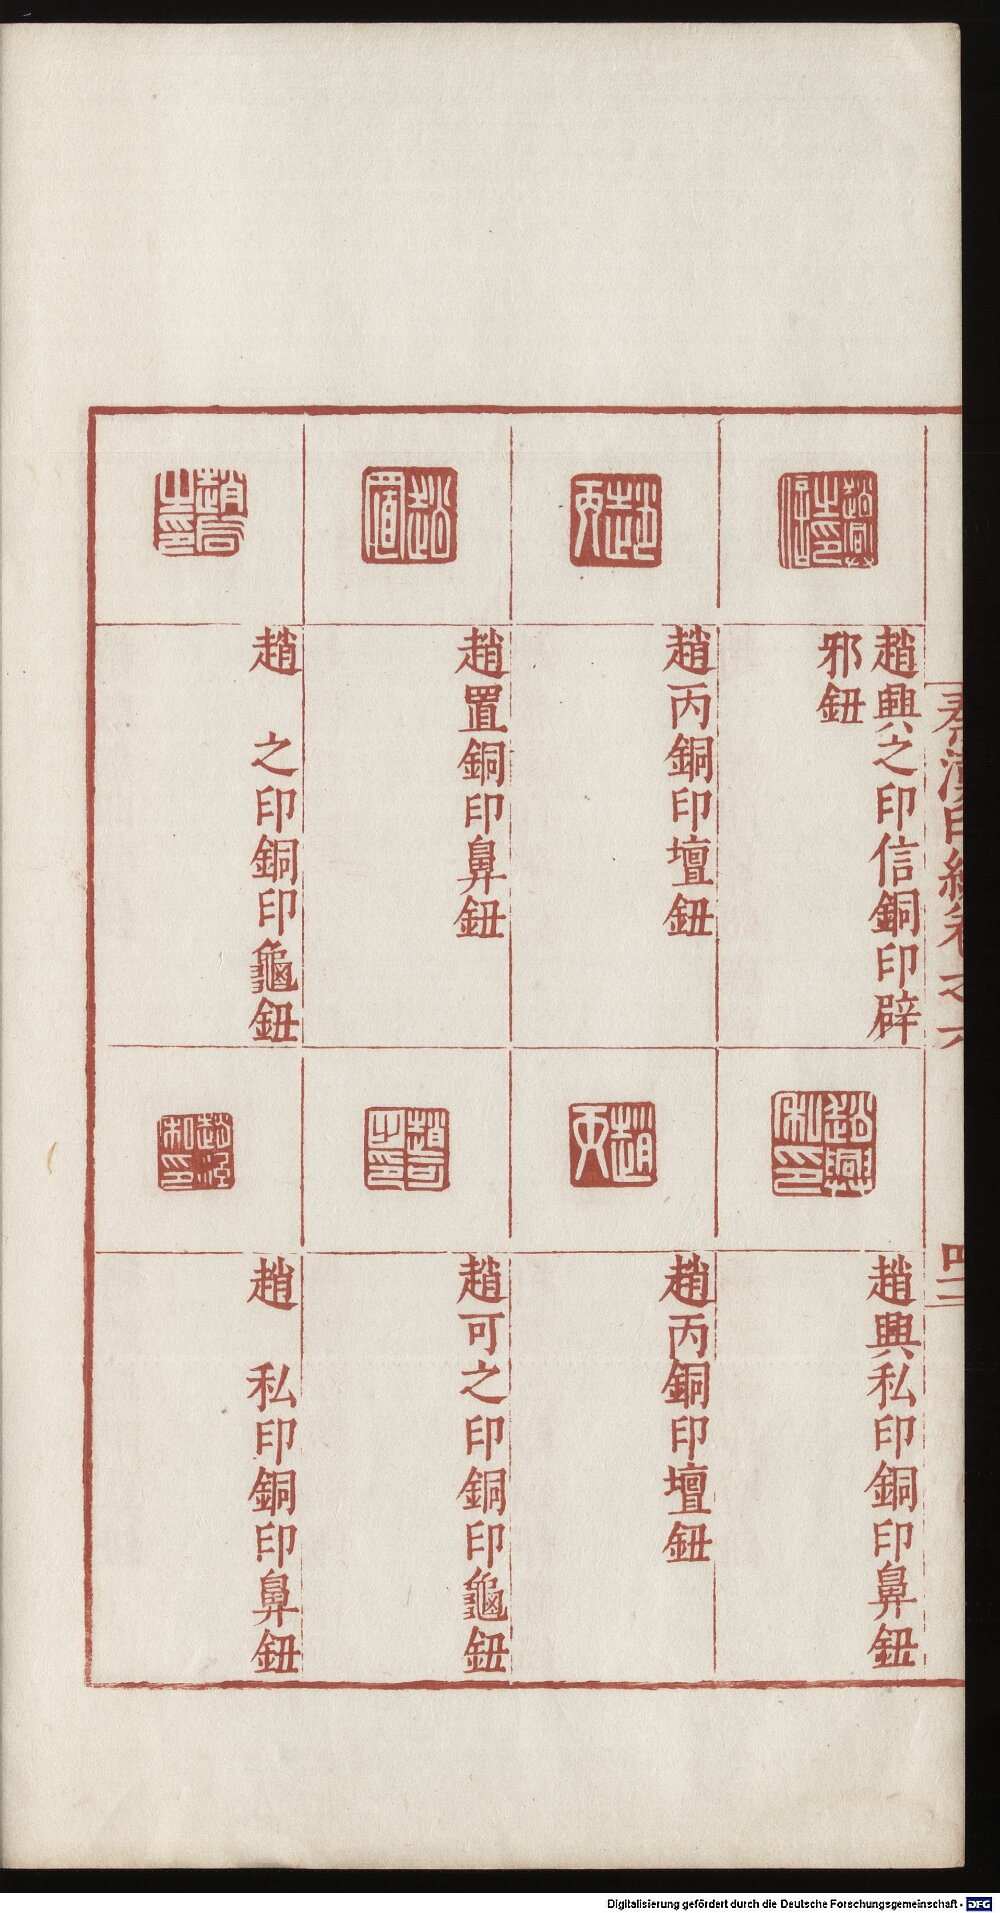 秦漢印統卷之六
四二
趙興之印信
趙興之印信銅印辟
邪鈕
趙丙
趙丙銅印壇鈕
趙置
趙置銅印鼻鈕
趙 之印
趙 之印銅印龜鈕
趙興私印
趙興私印銅印鼻鈕
趙丙
趙丙銅印壇鈕
趙可之印
趙可之印銅印龜鈕
趙 私印
趙 私印銅印鼻鈕
Digitalisierung gefördert durch die Deutsche Forschungsgemeinschaft - DFG